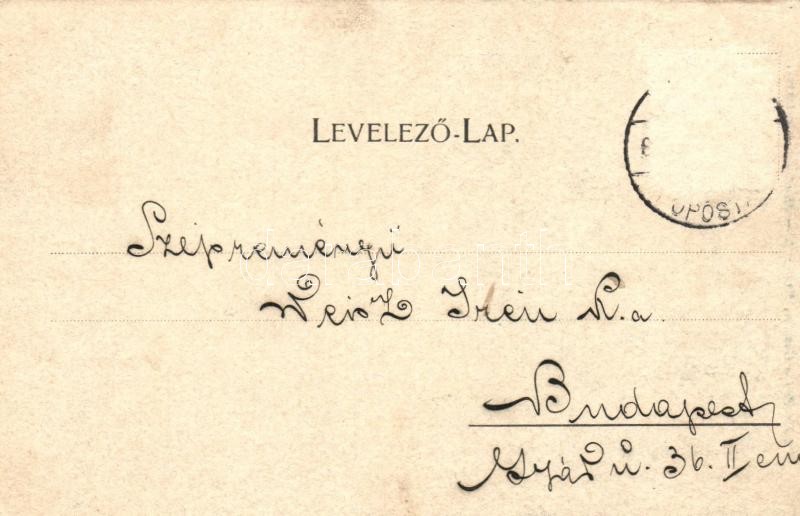 LEVELEZŐ-LAP.
Szépreményű
Weisz Irén K.a.
Budapest
Gyár u. 36. II em